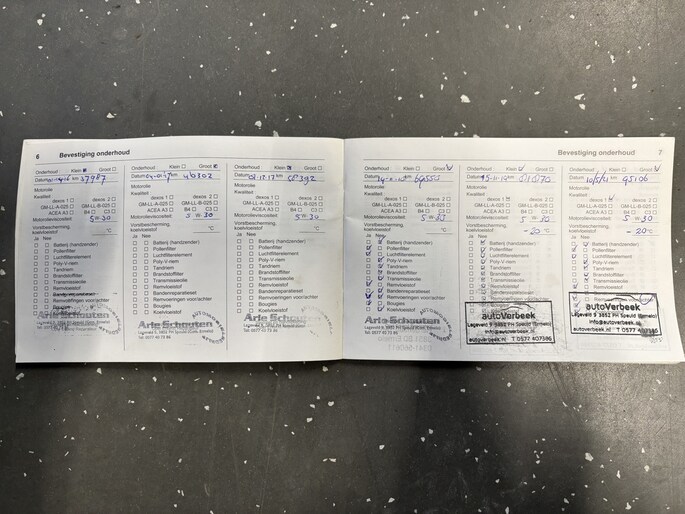 6 Bevestiging onderhoud
Onderhoud Klein Groot
Datum km 37987
Motorolie
Kwaliteit
dexos 1 dexos 2
GM-LL-A-025 GM-LL-B-025
ACEA A3 B4 C3
Motorolieviscositeit 5W30
Vorstbescherming,
koelvloeistof °C
Ja Nee
Batterij (handzender)
Pollenfilter
Luchtfilterelement
Poly-V-riem
Tandriem
Brandstoffilter
Transmissieolie
Remvloeistof
Bandenreparatieset
Remvoeringen voor/achter
Bougies
Arie Schouten
Lageveld 9, 3852 PH Speuld
Tel: 0577 40 73 86
Onderhoud Klein Groot
Datum km 46302
Motorolie
Kwaliteit
dexos 1 dexos 2
GM-LL-A-025 GM-LL-B-025
ACEA A3 B4 C3
Motorolieviscositeit 5W30
Vorstbescherming,
koelvloeistof °C
Ja Nee
Batterij (handzender)
Pollenfilter
Luchtfilterelement
Poly-V-riem
Tandriem
Brandstoffilter
Transmissieolie
Remvloeistof
Bandenreparatieset
Remvoeringen voor/achter
Bougies
Koelvloeistof
Arie Schouten
Onderhoud Klein Groot
Datum km
Motorolie
Kwaliteit
dexos 1 dexos 2
GM-LL-A-025 GM-LL-B-025
ACEA A3 B4 C3
Motorolieviscositeit 5W30
Vorstbescherming,
koelvloeistof °C
Ja Nee
Batterij (handzender)
Pollenfilter
Luchtfilterelement
Poly-V-riem
Tandriem
Brandstoffilter
Transmissieolie
Remvloeistof
Bandenreparatieset
Remvoeringen voor/achter
Bougies
Koelvloeistof
Arie Schouten
Bevestiging onderhoud 7
Onderhoud Klein Groot
Datum km
Motorolie
Kwaliteit
dexos 1 dexos 2
GM-LL-A-025 GM-LL-B-025
ACEA A3 B4 C3
Motorolieviscositeit
Vorstbescherming,
koelvloeistof °C
Ja Nee
Batterij (handzender)
Pollenfilter
Luchtfilterelement
Poly-V-riem
Tandriem
Brandstoffilter
Transmissieolie
Remvloeistof
Bandenreparatieset
Remvoeringen voor/achter
Bougies
Koelvloeistof
Arie Schouten
Lageveld 9, 3852 PH Speuld
Tel: 0577 40 73 86
Onderhoud Klein Groot
Datum km
Motorolie
Kwaliteit
dexos 1 dexos 2
GM-LL-A-025 GM-LL-B-025
ACEA A3 B4 C3
Motorolieviscositeit
Vorstbescherming,
koelvloeistof -20 °C
Ja Nee
Batterij (handzender)
Pollenfilter
Luchtfilterelement
Poly-V-riem
Tandriem
Brandstoffilter
Transmissieolie
Remvloeistof
Bandenreparatieset
autoVerbeek
Lageveld 9 3852 PH Speuld (Ermelo)
info@autoverbeek.nl
autoverbeek.nl T 0577 407386
Onderhoud Klein Groot
Datum km 95106
Motorolie
Kwaliteit
dexos 1 dexos 2
GM-LL-A-025 GM-LL-B-025
ACEA A3 B4 C3
Motorolieviscositeit 5W30
Vorstbescherming,
koelvloeistof -20 °C
Ja Nee
Batterij (handzender)
Pollenfilter
Luchtfilterelement
Poly-V-riem
Tandriem
Brandstoffilter
Transmissieolie
Remvloeistof
autoVerbeek
Lageveld 9 3852 PH Speuld (Ermelo)
info@autoverbeek.nl
autoverbeek.nl T 0577 407386